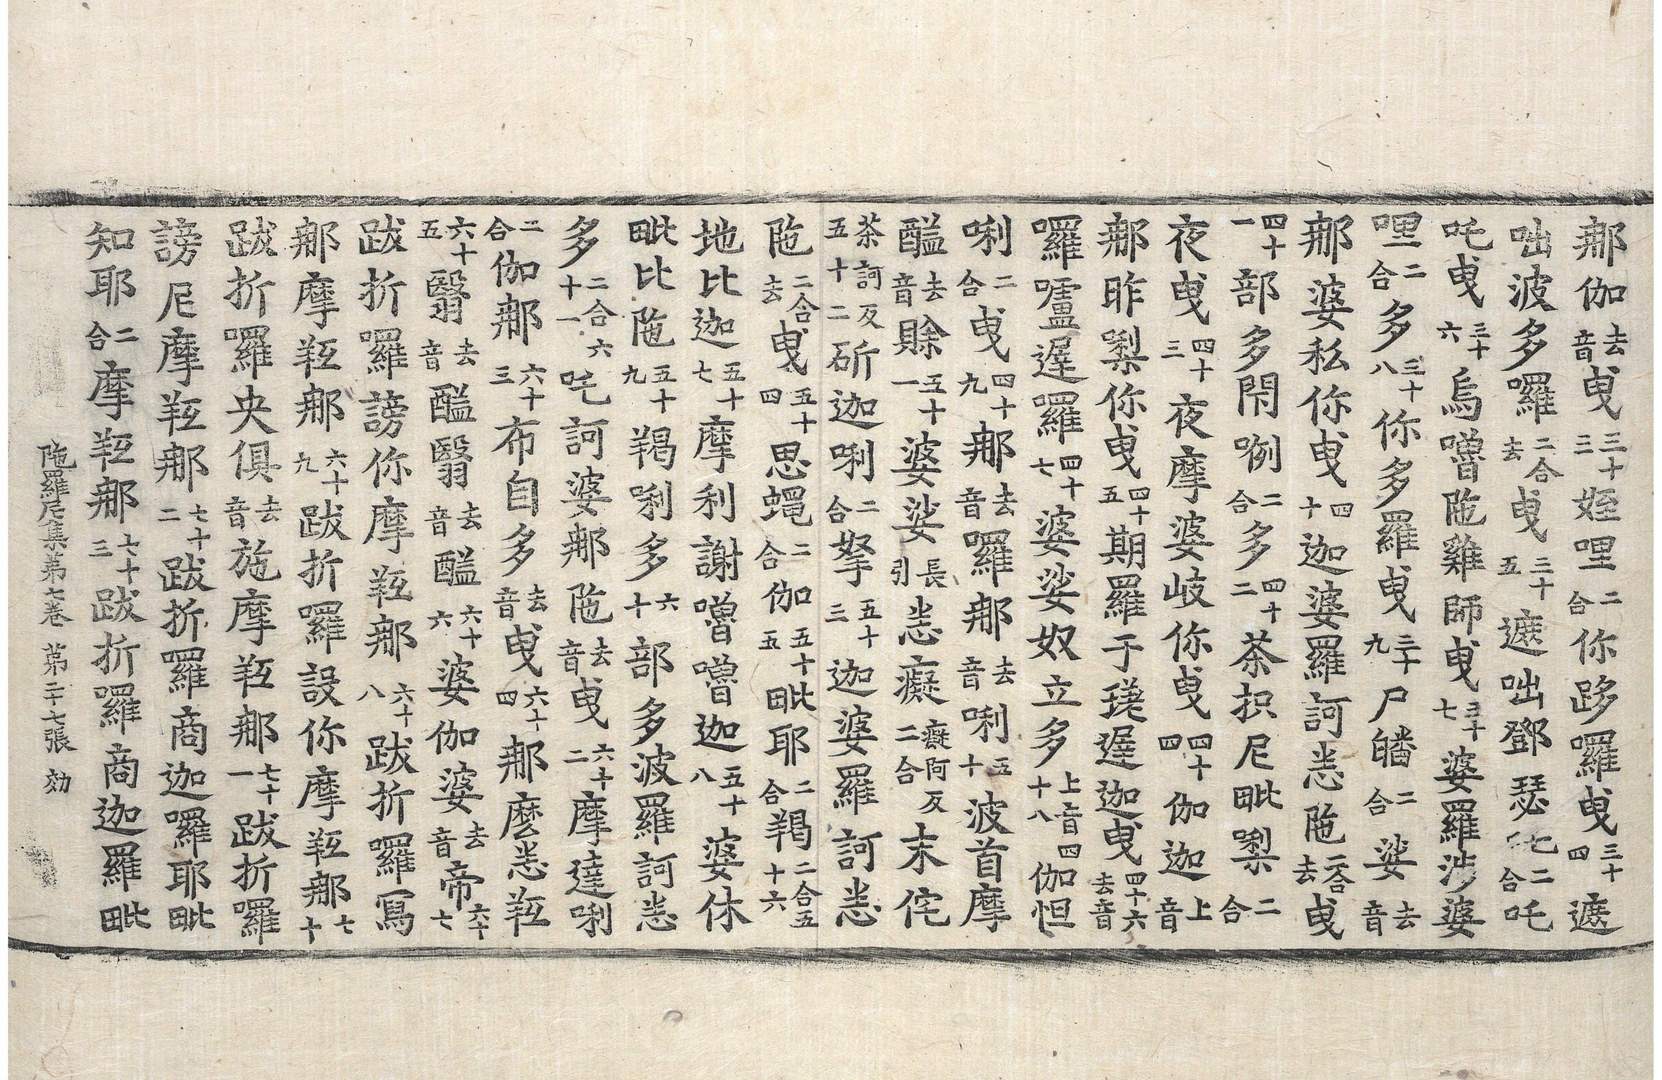 那伽去音曳三十三姪哩二合你跢羅曳三十四遮
咄波多囉二合去曳三十五遮咄鄧瑟吒二合吒
吒曳三十六烏噌陁雞師曳三十七婆羅涉婆
哩二合多三十八你多羅曳三十九尸皤二合娑去音
那婆私你曳四十迦婆羅訶恙陁二合去曳
四十一部多閇唎二合多四十二荼抧尼毗㗚二合
夜曳四十三夜摩婆岐你曳四十四伽迦上音
那昨㗚你曳四十五期羅于瑳遲迦曳四十六去音
囉嚧遲羅四十七婆娑奴立多上音四十八伽怛
唎二合曳四十九那去音羅那去音唎五十波首摩
醯去音賖五十一婆娑長引恙癡癡阿反二合末侘
茶訶反五十二斫迦唎二合拏五十三迦婆羅訶恙
陁二合去曳五十四思蠅二合伽五十五毗耶二合羯二合五十六
地比迦五十七摩利謝噌噌迦五十八婆休
毗比陁五十九羯唎多六十部多波羅訶恙
多二合六十一吃訶婆那陁去音曳六十二摩達唎
二合伽那六十三布自多去音曳六十四那麼恙䩭
六十五翳去音醯翳去音醯六十六婆伽婆去音帝六十七
跋折囉謗你摩䩭那六十八跋折囉寫
那摩䩭那六十九跋折囉設你摩䩭那七十
跋折囉央俱去音施摩䩭那七十一跋折囉
謗尼摩䩭那七十二跋折囉商迦囉耶毗
知耶二合摩䩭那七十三跋折囉商迦羅毗
陁羅尼集第七卷 第二十七張 効